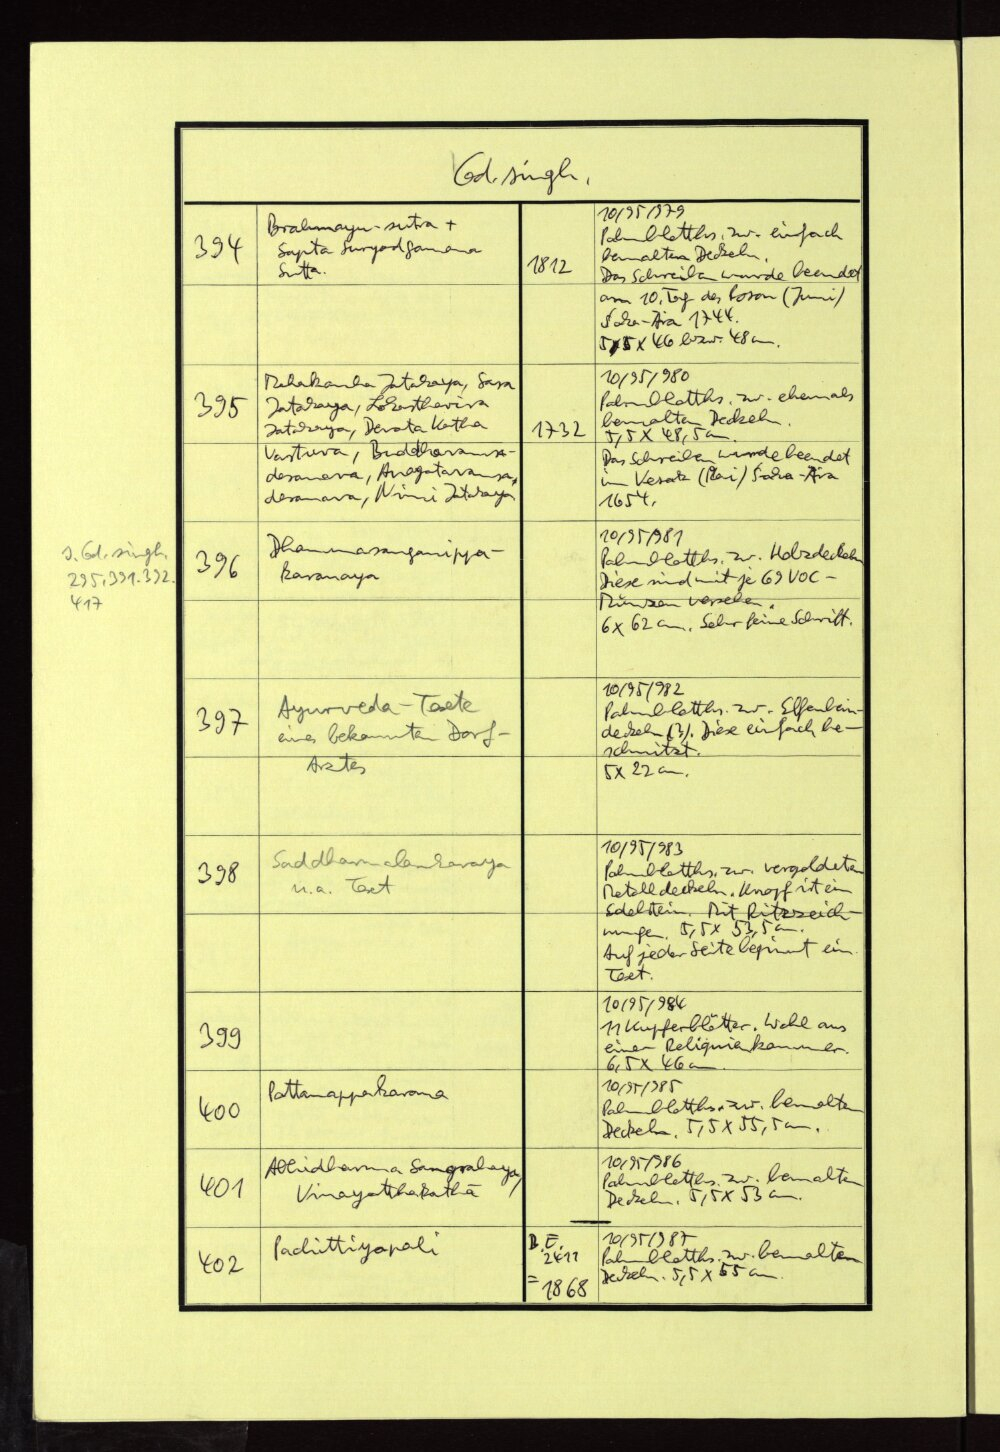 Cod. singh.
394
Brahmayu-sutra +
Sapta Suryodgamana
Sutta.
1812
10/95/979
Palmblatths. zw. einfach
bemalten Deckeln.
Das Schreiben wurde beendet
am 10. Tag des Poson (Juni)
Saka-Ära 1744.
5,5 x 46 bzw. 48 cm.
395
Mahakanha Jatakaya, Sasa
Jatakaya, Losasthavira
Jatakaya, Devata Katha
Vastuva, Buddhavamsa-
desanava, Anagatavamsa,
desanava, Nimi Jatakaya
1732
10/95/980
Palmblatths. zw. ehemals
bemalten Deckeln.
5,5 x 48,5 cm.
Das Schreiben wurde beendet
im Vesak (Mai) Saka-Ära
1654.
s. Cod. singh.
295.391.392.
417
396
Dhammasanganippa-
karanaya
10/95/981
Palmblatths. zw. Holzdeckeln
Diese sind mit je 69 VOC-
Münzen versehen.
6 x 62 cm. Sehr feine Schrift.
397
Ayurveda-Texte
eines bekannten Dorf-
Arztes
10/95/982
Palmblatths. zw. Elfenbein-
deckeln (3). Diese einfach be-
schnitzt.
5 x 22 cm.
398
Saddharmalankaraya
u.a. Text
10/95/983
Palmblatths. zw. vergoldeten
Metalldeckeln. Knopf ist ein
Edelstein. Mit Ritzzeich-
nungen. 5,5 x 53,5 cm.
Auf jeder Seite beginnt ein
Text.
399
10/95/984
11 Kupferblätter. Wohl aus
einer Reliquienkammer.
6,5 x 46 cm.
400
Pattanappakarana
10/95/985
Palmblatths. zw. bemalten
Deckeln. 5,5 x 55,5 cm.
401
Abhidharma Sangrahaya,
Vinayatthakathā
10/95/986
Palmblatths. zw. bemalten
Deckeln. 5,5 x 53 cm.
402
Pachittiyapali
B.E.
2411
= 1868
10/95/987
Palmblatths. zw. bemalten
Deckeln. 5,5 x 55 cm.